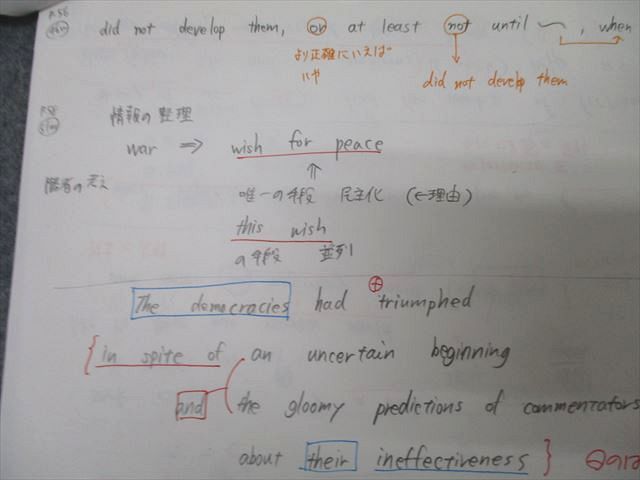 P.56
did not develop them, or at least not until 〜, when
より正確にいえば
いや
did not develop them
情報の整理
war ⇒ wish for peace
⇑
唯一の手段 民主化 (←理由)
this wish
の手段 並列
The democracies had ⊕ triumphed
{in spite of an uncertain beginning
and the gloomy predictions of commentators
about their ineffectiveness}